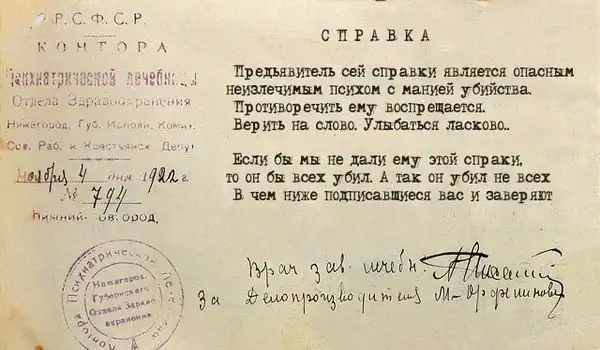 Р.С.Ф.С.Р.
КОНТОРА
Психиатрической лечебницы
Отдела Здравоохранения
Нижегород. Губ. Исполн. Комит.
Сов. Раб. и Крестьянск. Депут
Ноября 4 дня 1922 г.
№ 794
Нижний-Новгород.
СПРАВКА
Предьявитель сей справки является опасным
неизлечимым психом с манией убийства.
Противоречить ему воспрещается.
Верить на слово. Улыбаться ласково..
Если бы мы не дали ему этой спраки,
то он бы всех убил. А так он убил не всех
В чем ниже подписавшиеся вас и заверяют
Врач зав. лечебн.
За Делопроизводителя
Контора Психиатрической
Нижегород.
Губернского
Отдела Здраво
охранения